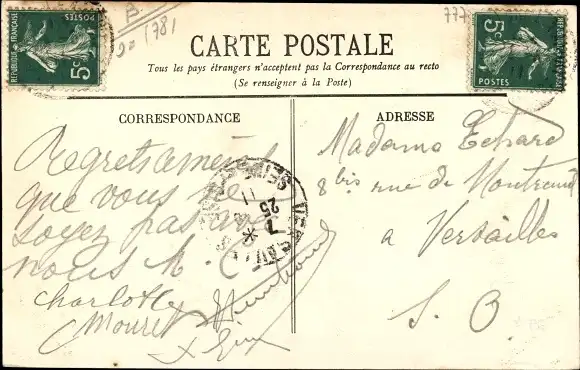 RÉPUBLIQUE FRANÇAISE
POSTES
5c
B
777
5c
POSTES
CARTE POSTALE
Tous les pays étrangers n'acceptent pas la Correspondance au recto
(Se renseigner à la Poste)
CORRESPONDANCE
Regrets amers
que vous ne
soyez pas avec
nous M. C
Charlotte
Mouret
ADRESSE
Madame
8 bis rue de Montreuil
a Versailles
S. O
25
7